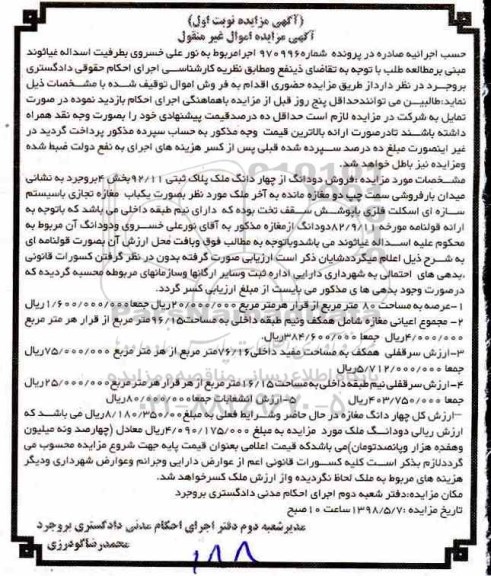 (آگهی مزایده نوبت اول)
آگهی مزایده اموال غیر منقول
حسب اجرائیه صادره در پرونده شماره ۹۷۰۹۹۶ اجرا مربوط به نور علی خسروی بطرفیت اسداله غیاثوند
مبنی بر مطالعه طلب با توجه به تقاضای ذینفع و مطابق نظریه کارشناسی اجرای احکام حقوقی دادگستری
بروجرد در نظر دارد از طریق مزایده حضوری اقدام به فروش اموال توقیف شده با مشخصات ذیل
نماید: طالبین می توانند حداقل پنج روز قبل از مزایده با هماهنگی اجرای احکام بازدید نموده در صورت
تمایل به شرکت در مزایده لازم است حداقل ده درصد قیمت پیشنهادی خود را بصورت وجه نقد همراه
داشته باشند تا در صورت ارائه بالاترین قیمت وجه مذکور به حساب سپرده مذکور پرداخت گردید در
غیر اینصورت مبلغ ده درصد سپرده شده قبلی پس از کسر هزینه های اجرای به نفع دولت ضبط شده
و مزایده نیز باطل خواهد شد.
مشخصات مورد مزایده: فروش دودانگ از چهار دانگ ملک پلاک ثبتی ۹۲/۱۱ بخش ۴ بروجرد به نشانی
میدان بارفروشی سمت چپ دو مغازه مانده به آخر ملک مورد نظر بصورت یکباب مغازه تجاری با سیستم
سازه ای اسکلت فلزی با پوشش سقف تخت بوده که دارای نیم طبقه داخلی می باشد که با توجه به
ارائه قولنامه مورخه ۸۲/۹/۱۱ دودانگ از مغازه مذکور به آقای نورعلی خسروی و دودانگ آن مربوط به
محکوم علیه اسداله غیاثوند می باشد و با توجه به مطالب فوق و بافت محل ارزش آن بصورت قولنامه ای
به شرح ذیل اعلام میگردد شایان ذکر است ارزیابی صورت گرفته بدون در نظر گرفتن کسورات قانونی
، بدهی های احتمالی به شهرداری دارایی اداره ثبت و سایر ارگانها و سازمانهای مربوطه محسبه گردیده که
در صورت وجود بدهی ها ی مذکور می بایست از مبلغ ارزیابی کسر گردد.
۱-عرصه به مساحت ۸۰ متر مربع از قرار هر متر مربع ۲۰/۰۰۰/۰۰۰ ریال جمعا ۱/۶۰۰/۰۰۰/۰۰۰ ریال
۲- مجموع اعیانی مغازه شامل همکف و نیم طبقه داخلی به مساحت ۹۶/۱۵ متر مربع از قرار هر متر مربع
۴/۰۰۰/۰۰۰ ریال جمعا ۳۸۴/۶۰۰/۰۰۰ ریال
۳-ارزش سرقفلی همکف به مساحت مفید داخلی ۷۶/۱۶ متر مربع از هر متر مربع ۷۵/۰۰۰/۰۰۰ ریال
جمعا ۵/۷۱۲/۰۰۰/۰۰۰ ریال
۴-ارزش سرقفلی نیم طبقه داخلی به مساحت ۱۶/۱۵ متر مربع از هر قرار هر متر مربع ۲۵/۰۰۰/۰۰۰ ریال
جمعا ۴۰۳/۷۵۰/۰۰۰ ریال ۵-ارزش انشعابات جمعا ۸۰/۰۰۰/۰۰۰ ریال
-ارزش کل چهار دانگ مغازه در حال حاضر و شرایط فعلی به مبلغ ۸/۱۸۰/۳۵۰/۰۰۰ ریال می باشد که
ارزش ریالی دودانگ ملک مورد مزایده به مبلغ ۴/۰۹۰/۱۷۵/۰۰۰ ریال معادل (چهارصد و نه میلیون
و هفده هزار و پانصد تومان) می باشد که قیمت اعلامی بعنوان قیمت پایه جهت شروع مزایده محسوب می
گردد لازم بذکر است کلیه کسورات قانونی اعم از عوارض دارایی و جرائم و عوارض شهرداری و دیگر
هزینه های مربوط به ملک لحاظ نگردیده و از ارزش ملک کسر خواهد شد.
مکان مزایده: دفتر شعبه دوم اجرای احکام مدنی دادگستری بروجرد
تاریخ مزایده: ۱۳۹۸/۵/۷ ساعت ۱۰ صبح
مدیر شعبه دوم دفتر اجرای احکام مدنی دادگستری بروجرد
محمدرضا گودرزی
۱۸۸